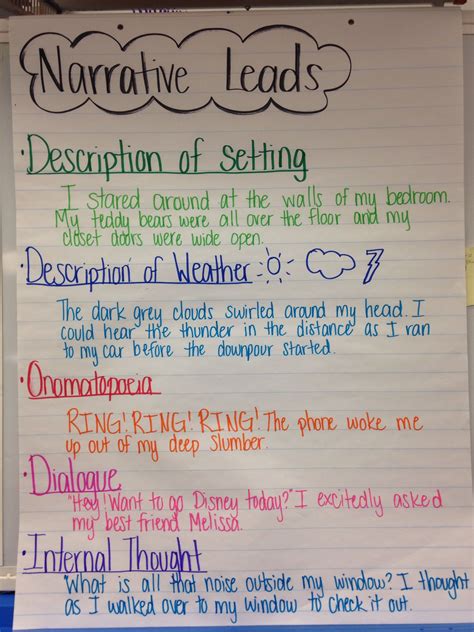 Narrative Leads
·Description of Setting
I stared around at the walls of my bedroom.
My teddy bears were all over the floor and my
closet doors were wide open.
·Description of Weather
The dark grey clouds swirled around my head. I
could hear the thunder in the distance as I ran
to my car before the downpour started.
·Onomatopoeia
RING! RING! RING! The phone woke me
up out of my deep slumber.
·Dialogue
"Hey! Want to go Disney today?" I excitedly asked
my best friend Melissa.
·Internal Thought
"What is all that noise outside my window? I thought
as I walked over to my window to check it out.